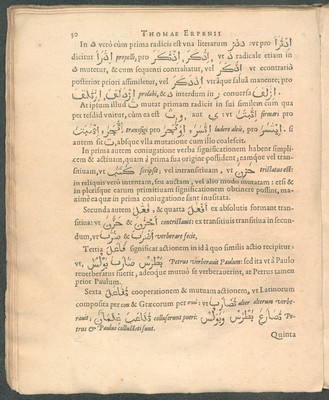 50 THOMAE ERPENII
د verò cùm prima radicis est vna literarum دذز, vt pro
dicitur propelli, pro vt ذ radicale etiam in
د mutetur, & cum sequenti contrahatur, vel vt econtrariò
posterior priori assimiletur, vel vtrâque salua maneat; pro
prolabi, & د interdum in ز conuersa
At ipsum illud ت mutat primam radicis in sui similem cum qua
per tesdid vnitur, cùm ea est و, aut ء; vt: firmari pro
transfigi pro & ludere aleâ, pro si
autem sit ت, absque vlla mutatione cum illo coalescit.
In prima autem coniugatione verba significationem habent simpli-
cem & actiuam, quam à prima sua origine possident; eamque vel tran-
sitiuam, vt كَتَبَ scripsit; vel intransitiuam, vt حَزِنَ tristatus est:
in reliquis verò intentam, seu auctam, vel alio modo mutatam: etsi &
in plerisque earum primitiuam significationem obtinere possint, ma-
ximè ea quæ in prima coniugatione sunt inusitata.
Secunda autem فَعَّلَ, & quarta أَفْعَلَ ex absolutis formant tran-
sitiua: vt حَزَّنَ & contristauit: ex transitiuis transitiua in secun-
dum, vt ضَرَّبَ & أَضْرَبَ verberare fecit,
Tertia فَاعَلَ significat actionem in id à quo similis actio recipitur:
vt, بُطْرُسُ ضَارَبَ بُولُسَ Petrus verberauit Paulum: sed ita vt à Paulo
reuerberatus fuerit, adeoque mutuò se verberauerint, at Petrus tamen
prior Paulum.
Sexta تَفَاعَلَ cooperationem & mutuam actionem, vt Latinorum
composita per con & Græcorum per συν: vt تَضَارَبَ alter alterum verbe-
rauit, colluserunt pueri: Pe-
trus & Paulus colluctati sunt.
Quinta